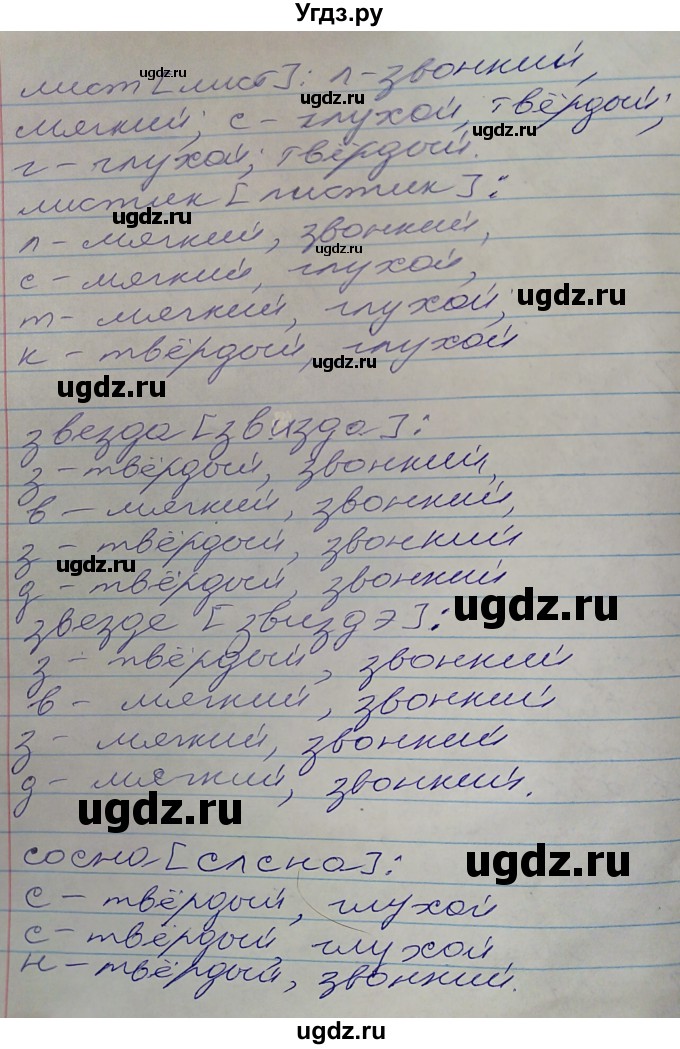 Угдз.ру
лист [лист]: л-звонкий,
мягкий; с - глухой, твёрдый;
т - глухой; твёрдый.
листик [листик]:
л - мягкий, звонкий,
с - мягкий, глухой,
т - мягкий, глухой,
к - твёрдый, глухой
звезда [звизда]:
з - твёрдый, звонкий,
в - мягкий, звонкий,
з - твёрдый, звонкий
д - твёрдый, звонкий
звезде [звиздэ]:
з - твёрдый, звонкий
в - мягкий, звонкий
з - мягкий, звонкий
д - мягкий, звонкий.
сосна [слсна]:
с - твёрдый, глухой
с - твёрдый, глухой
н - твёрдый, звонкий.
ugdz.ru
ugdz.ru
ugdz.ru
ugdz.ru
ugdz.ru
ugdz.ru
ugdz.ru
ugdz.ru
ugdz.ru
ugdz.ru
ugdz.ru
ugdz.ru
ugdz.ru